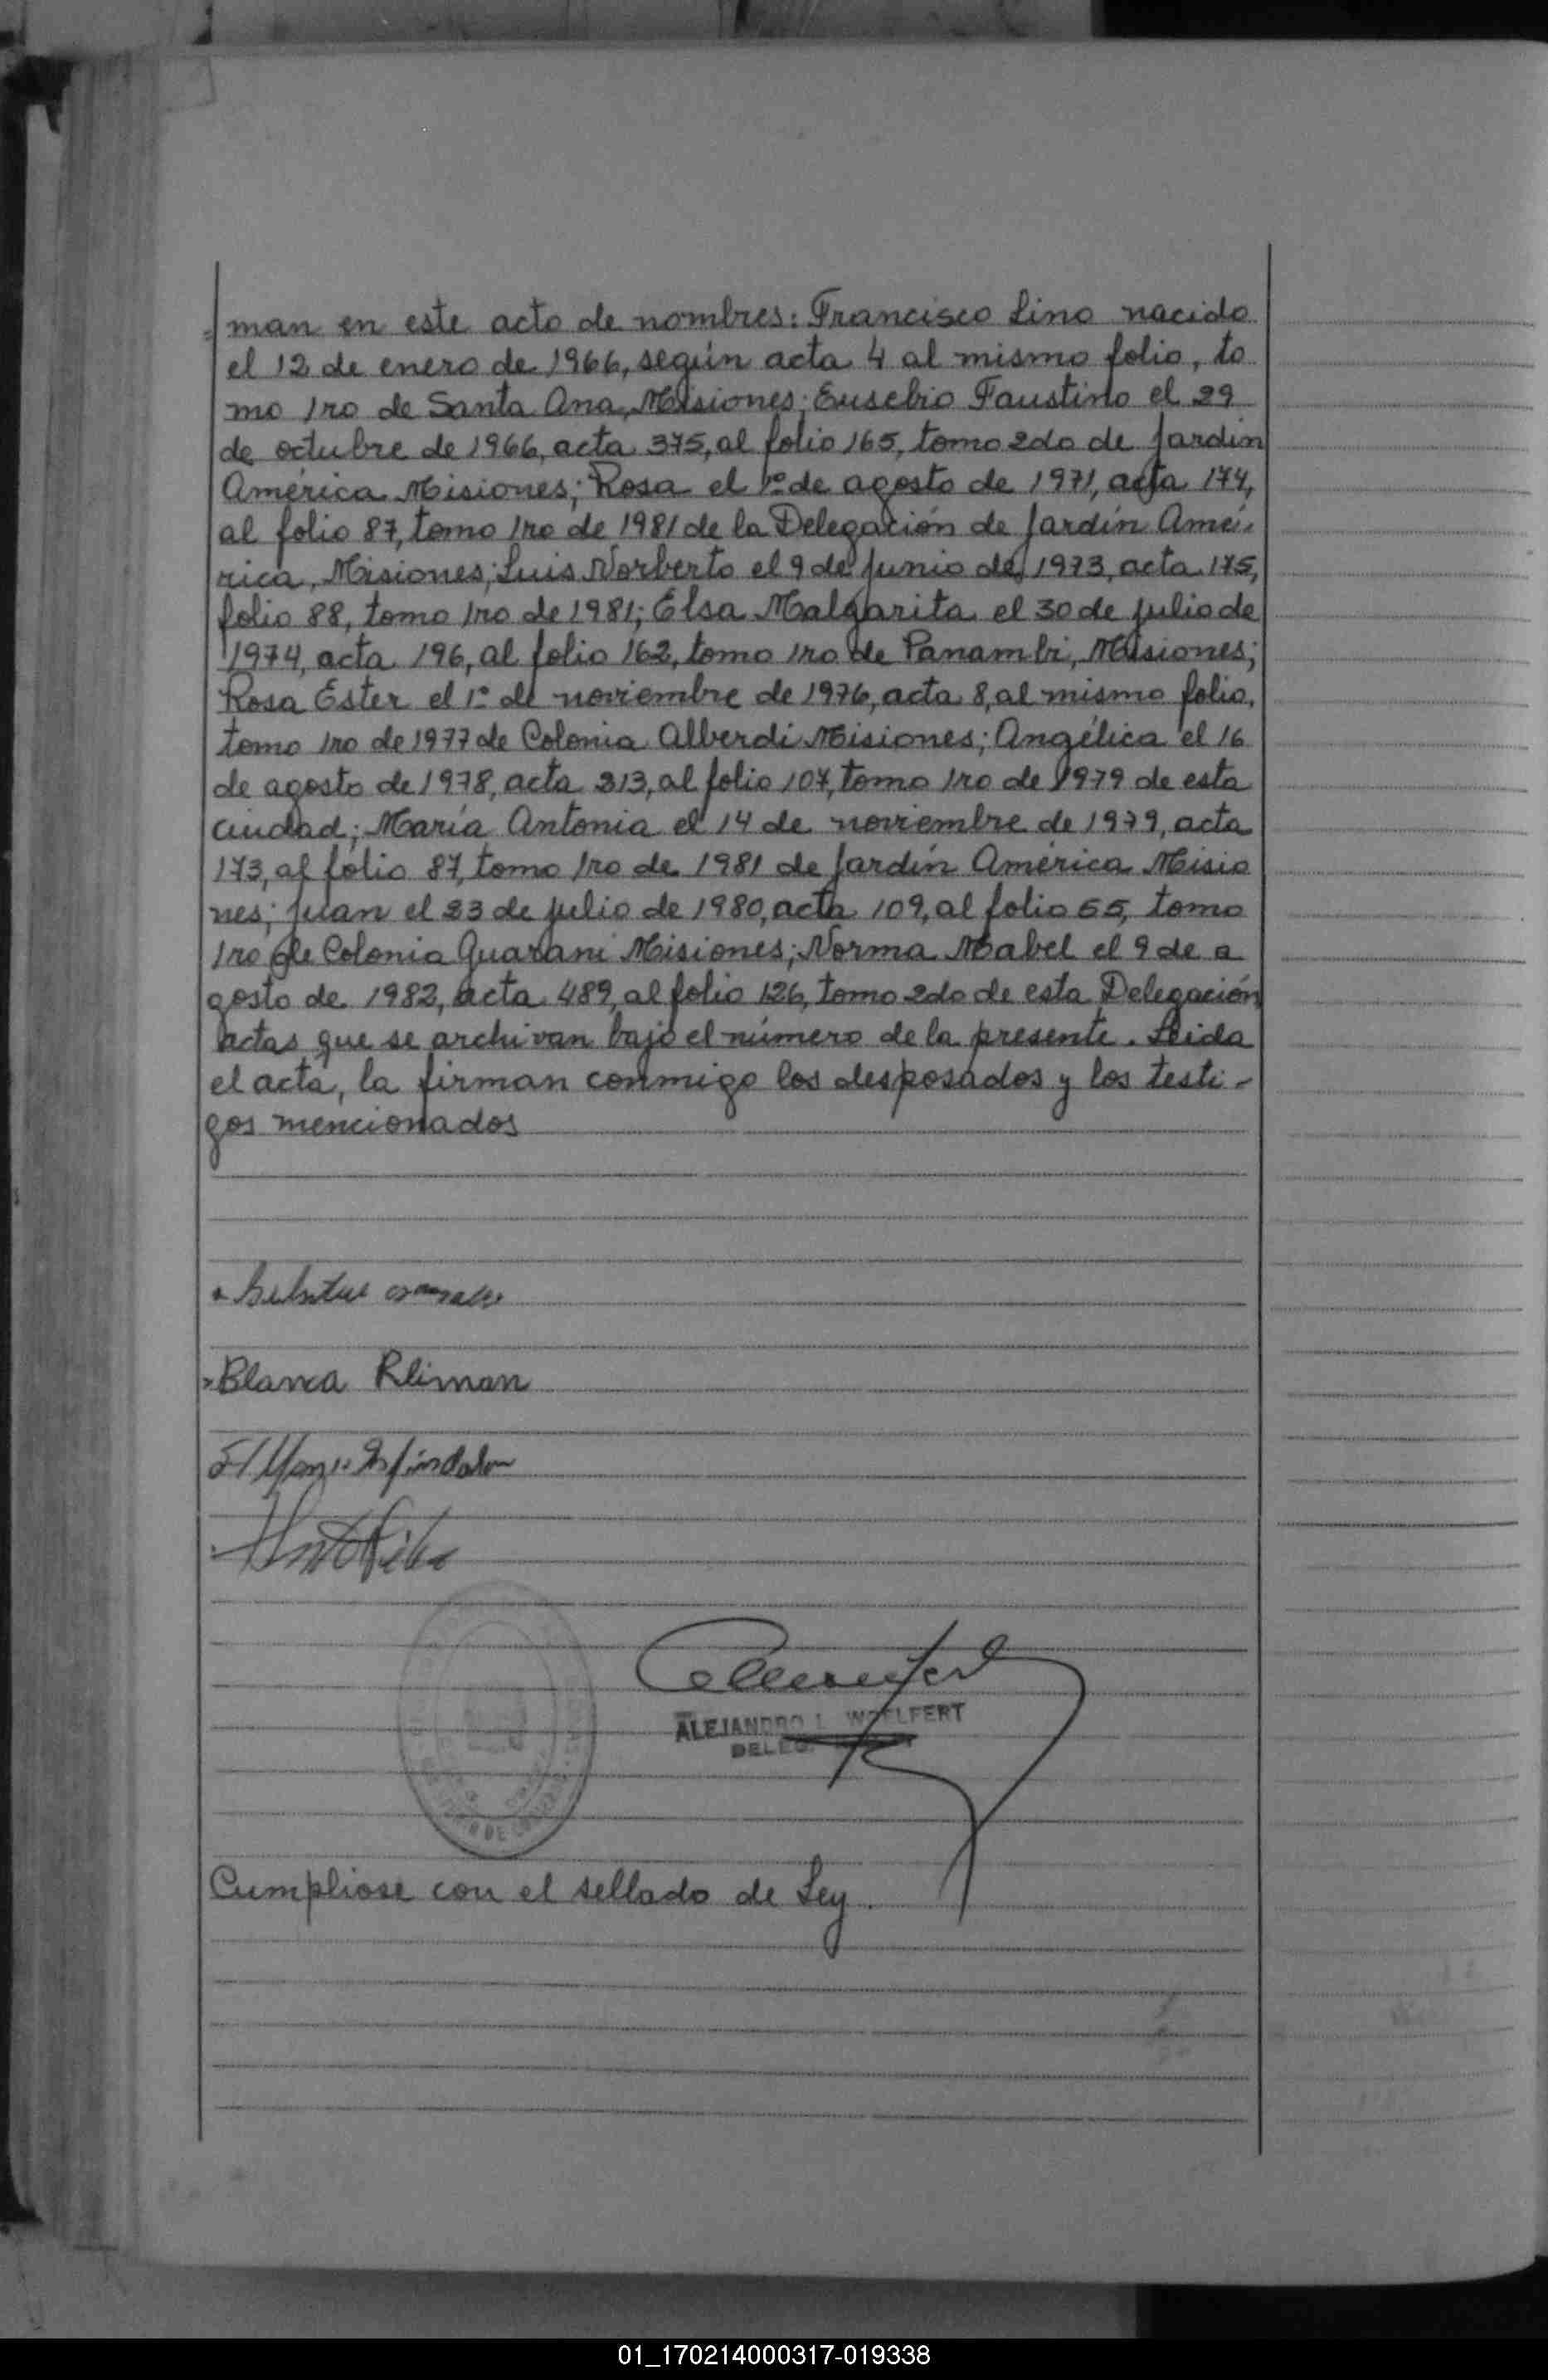 man en este acto de nombres: Francisco Lino nacido
el 12 de enero de 1966, según acta 4 al mismo folio, to
mo 1ro de Santa Ana, Misiones; Eusebio Faustino el 29
de octubre de 1966, acta 375, al folio 165, tomo 2do de Jardín
América Misiones; Rosa el 1º de agosto de 1971, acta 174,
al folio 87, tomo 1ro de 1981 de la Delegación de Jardín Amé-
rica, Misiones; Luis Norberto el 9 de junio de 1973, acta 175,
folio 88, tomo 1ro de 1981; Elsa Malgarita el 30 de julio de
1974, acta 196, al folio 162, tomo 1ro de Panambi, Misiones;
Rosa Ester el 1º de noviembre de 1976, acta 8, al mismo folio,
tomo 1ro de 1977 de Colonia Alberdi Misiones; Angélica el 16
de agosto de 1978, acta 313, al folio 107, tomo 1ro de 1979 de esta
ciudad; María Antonia el 14 de noviembre de 1979, acta
173, al folio 87, tomo 1ro de 1981 de Jardín América Misio
nes; Juan el 23 de julio de 1980, acta 109, al folio 55, tomo
1ro de Colonia Guaraní Misiones; Norma Mabel el 9 de a
gosto de 1982, acta 489, al folio 126, tomo 2do de esta Delegación
actas que se archivan bajo el número de la presente. Leida
el acta, la firman conmigo los desposados y los testi-
gos mencionados
Blanca Rliman
ALEJANDRO L. WOELFERT
Cumpliose con el sellado de Ley.
01_170214000317-019338